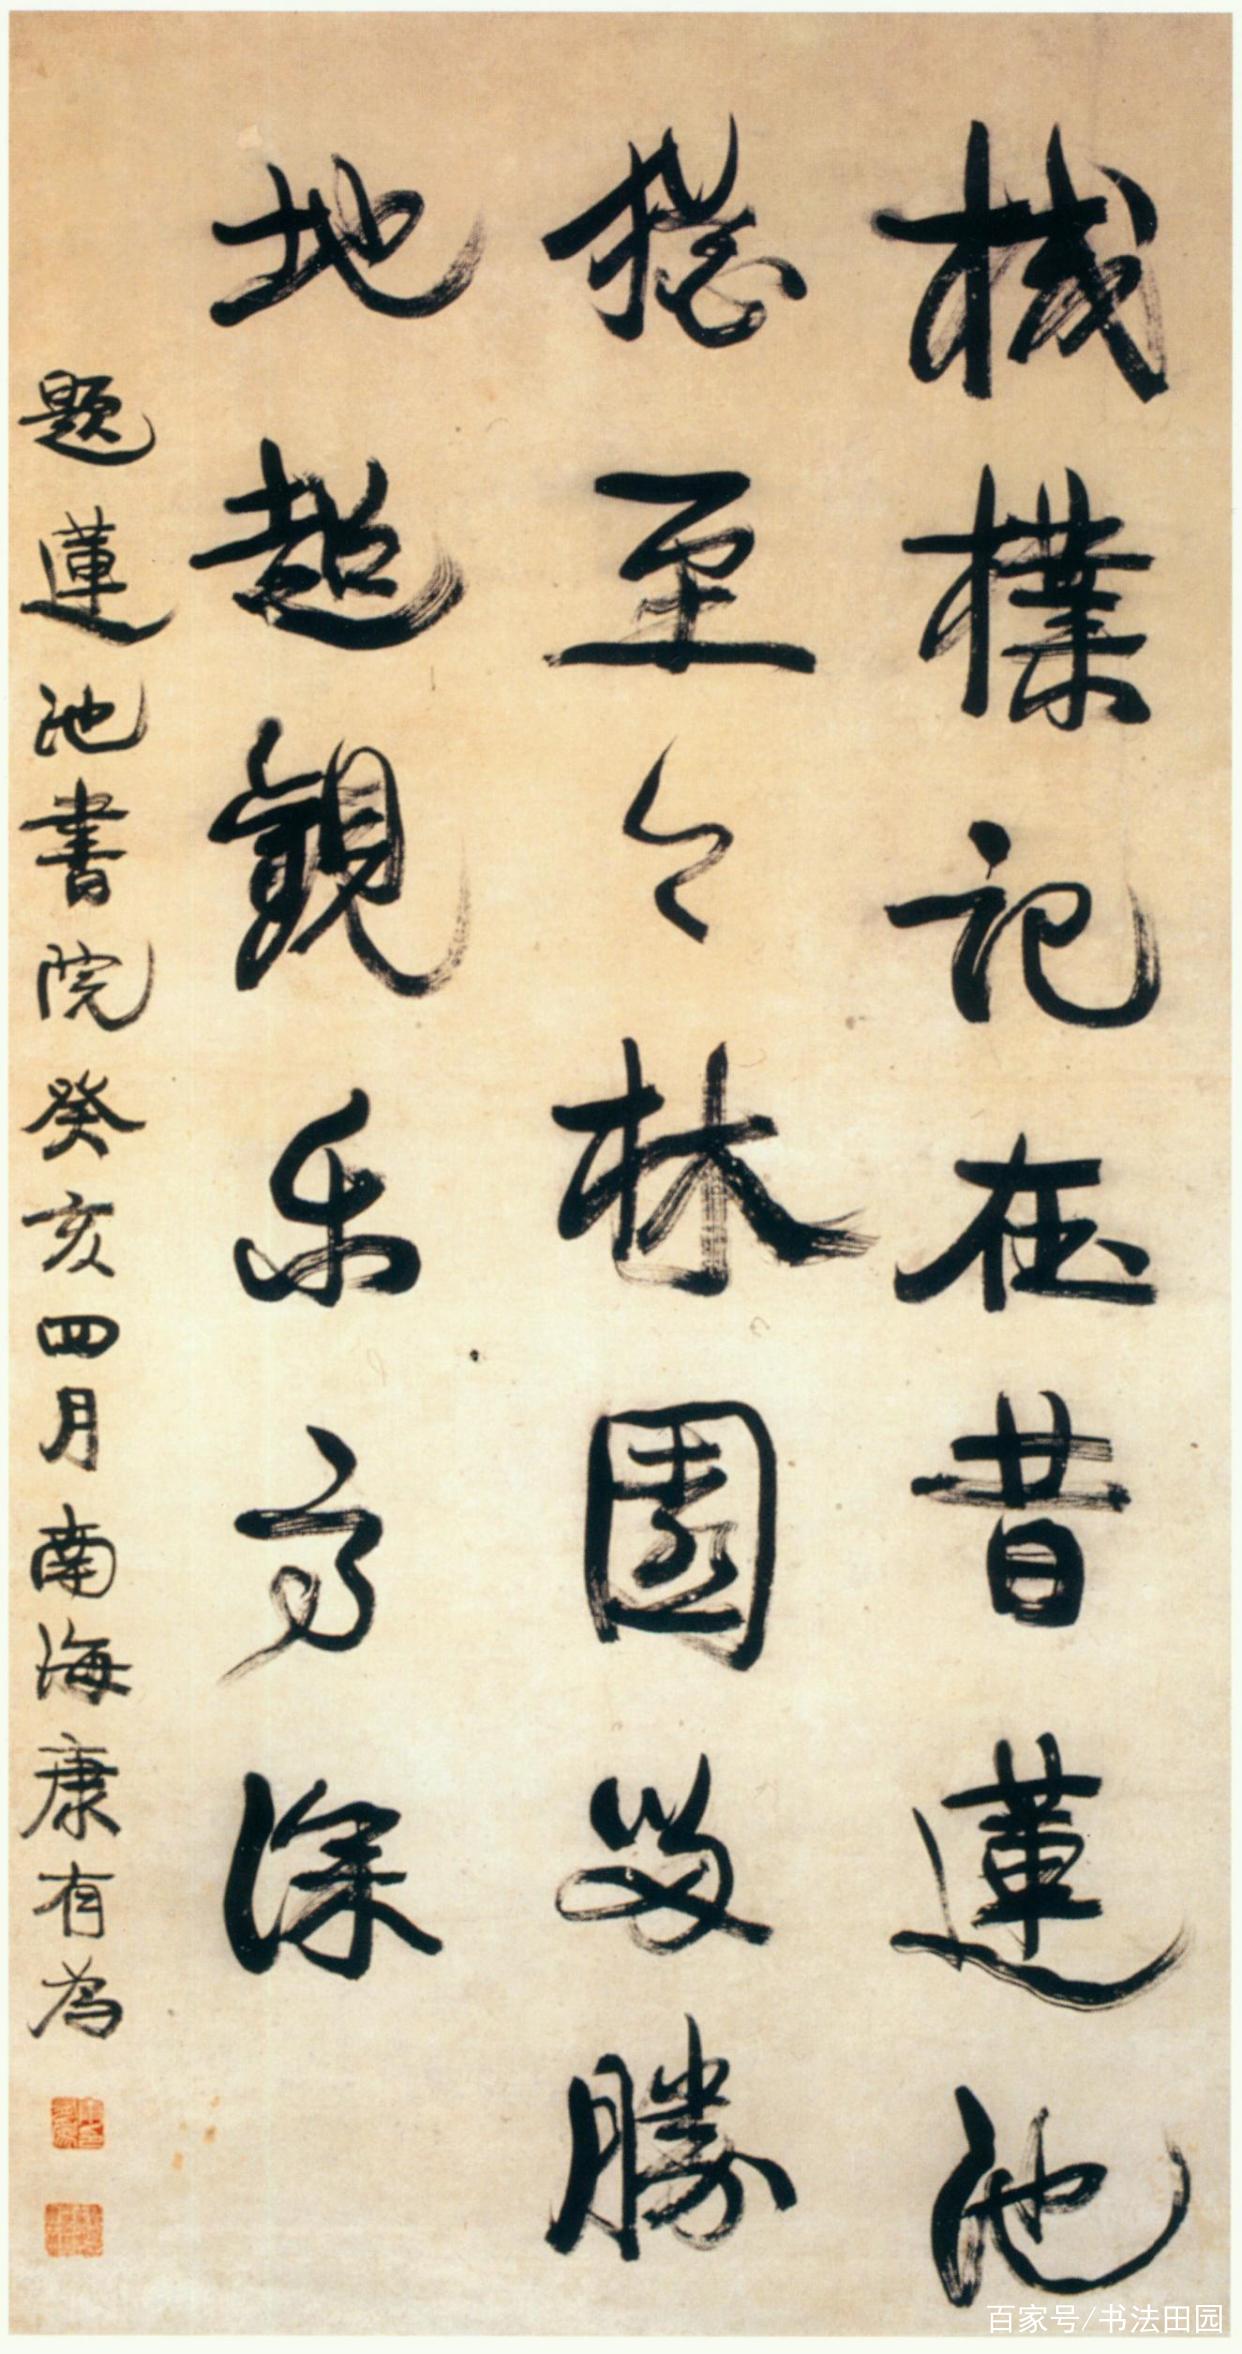 棫樸記在昔蓮池
猶至今林園留勝
地超觀乐高深
題蓮池書院癸亥四月南海康有为
百家号/书法田园